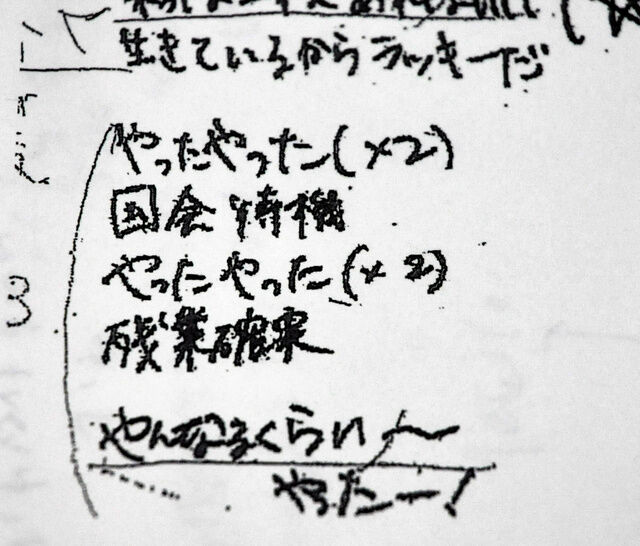 生きているからラッキーだ
やったやった(×2)
国会待機
やったやった(×2)
3
残業確実
やんなるくらい〜
やったー!